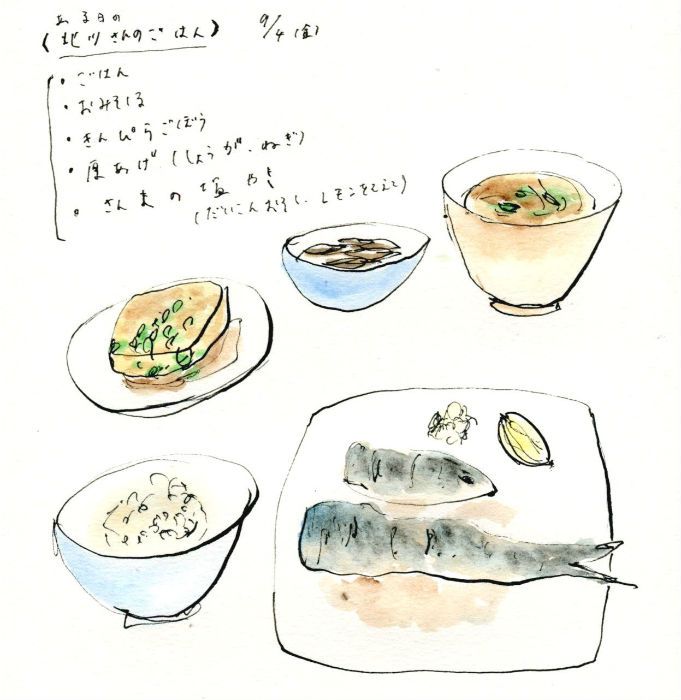 ある日の
(北川さんのごはん) 9/4(金)
・ごはん
・おみそしる
・きんぴらごぼう
・厚あげ(しょうが、ねぎ)
・さんまの塩やき
(だいこんおろし、レモンをそえて)